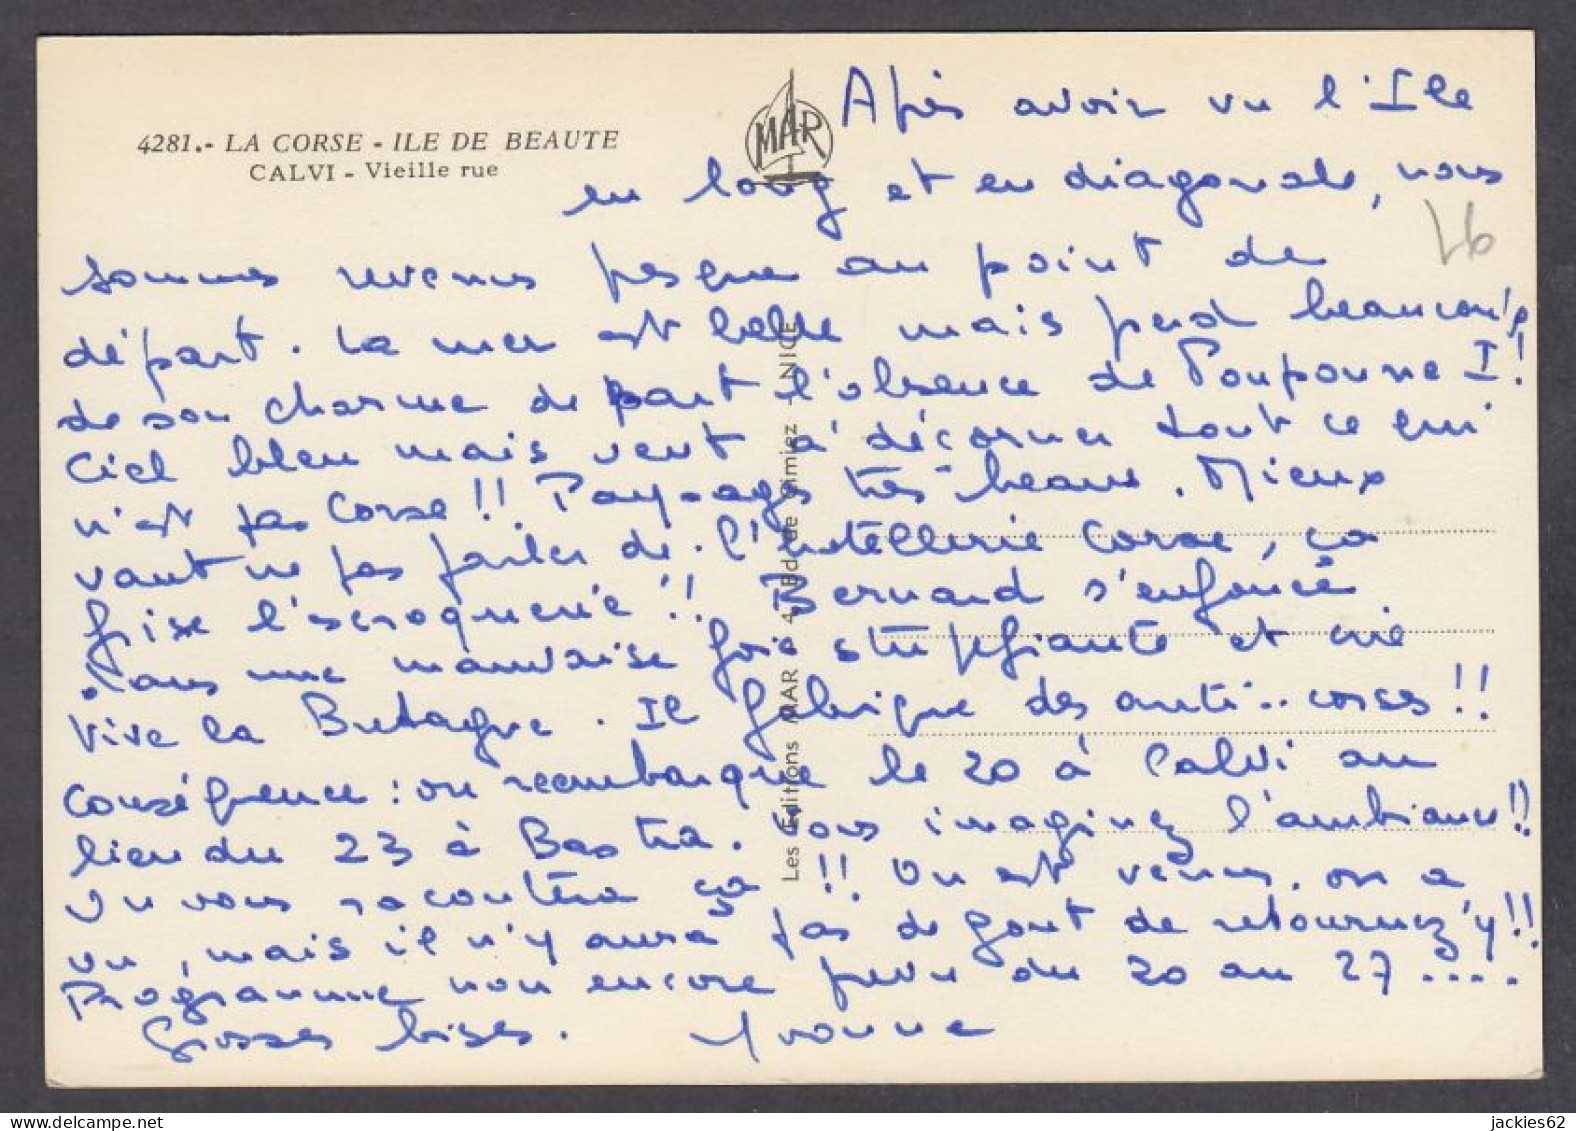 4281.- LA CORSE - ILE DE BEAUTE
CALVI - Vieille rue
MAR
Les Editions MAR 4, Bd de Cimiez NICE
76
Après avoir vu l'Ile
en long et en diagonale, nous
sommes revenus presque au point de
départ. La mer est belle mais perd beaucoup
de son charme de part l'absence de Pouponne I!
Ciel bleu mais vent à décorner tout ce qui
n'est pas Corse!! Paysages très beaux. Mieux
vaut ne pas parler de l'hotellerie Corse, ça
frise l'escroquerie!! Bernard s'enfonce
dans une mauvaise foie stupéfiante et crie
Vive la Bretagne. Il fabrique des anti..corses!!
Conséquence: on reembarque le 20 à Calvi au
lieu du 23 à Bastia. Vous imaginez l'ambiance!!
On vous racontera ça!! On est venus, on a
vu, mais il n'y aura pas de gout de retournez'y!!
Programme non encore prevu du 20 au 27....
Grosses bises. Yvonne
jackies62